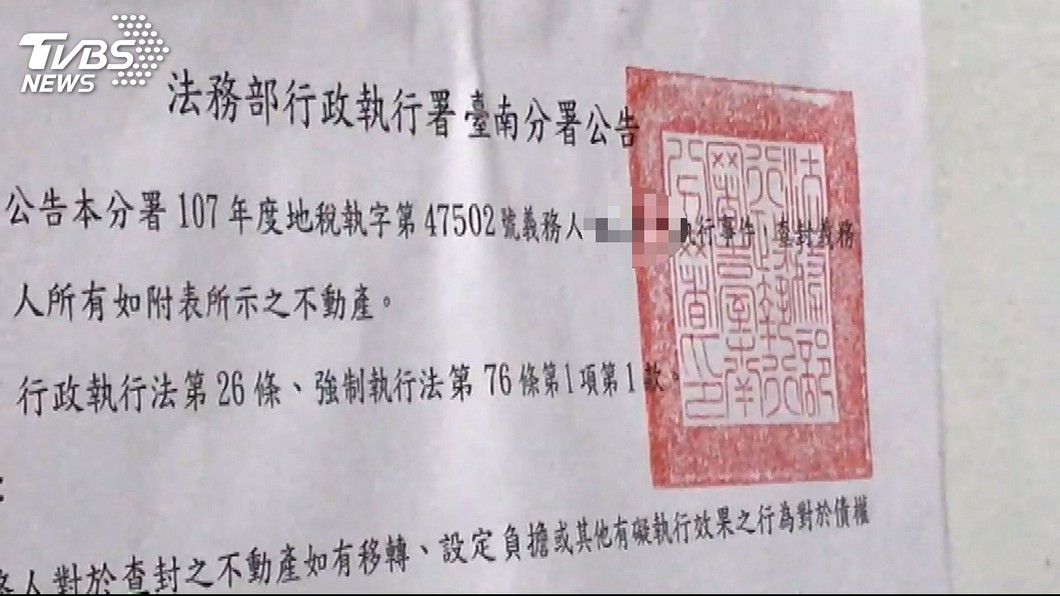 TVBS
NEWS
法務部行政執行署臺南分署公告
公告本分署107年度地稅執字第47502號義務人 執行事件，查封義務
人所有如附表所示之不動產。
行政執行法第26條、強制執行法第76條第1項第1款。
:
務人對於查封之不動產如有移轉、設定負擔或其他有礙執行效果之行為對於債權
法務部
行政執行
署臺南
分署印